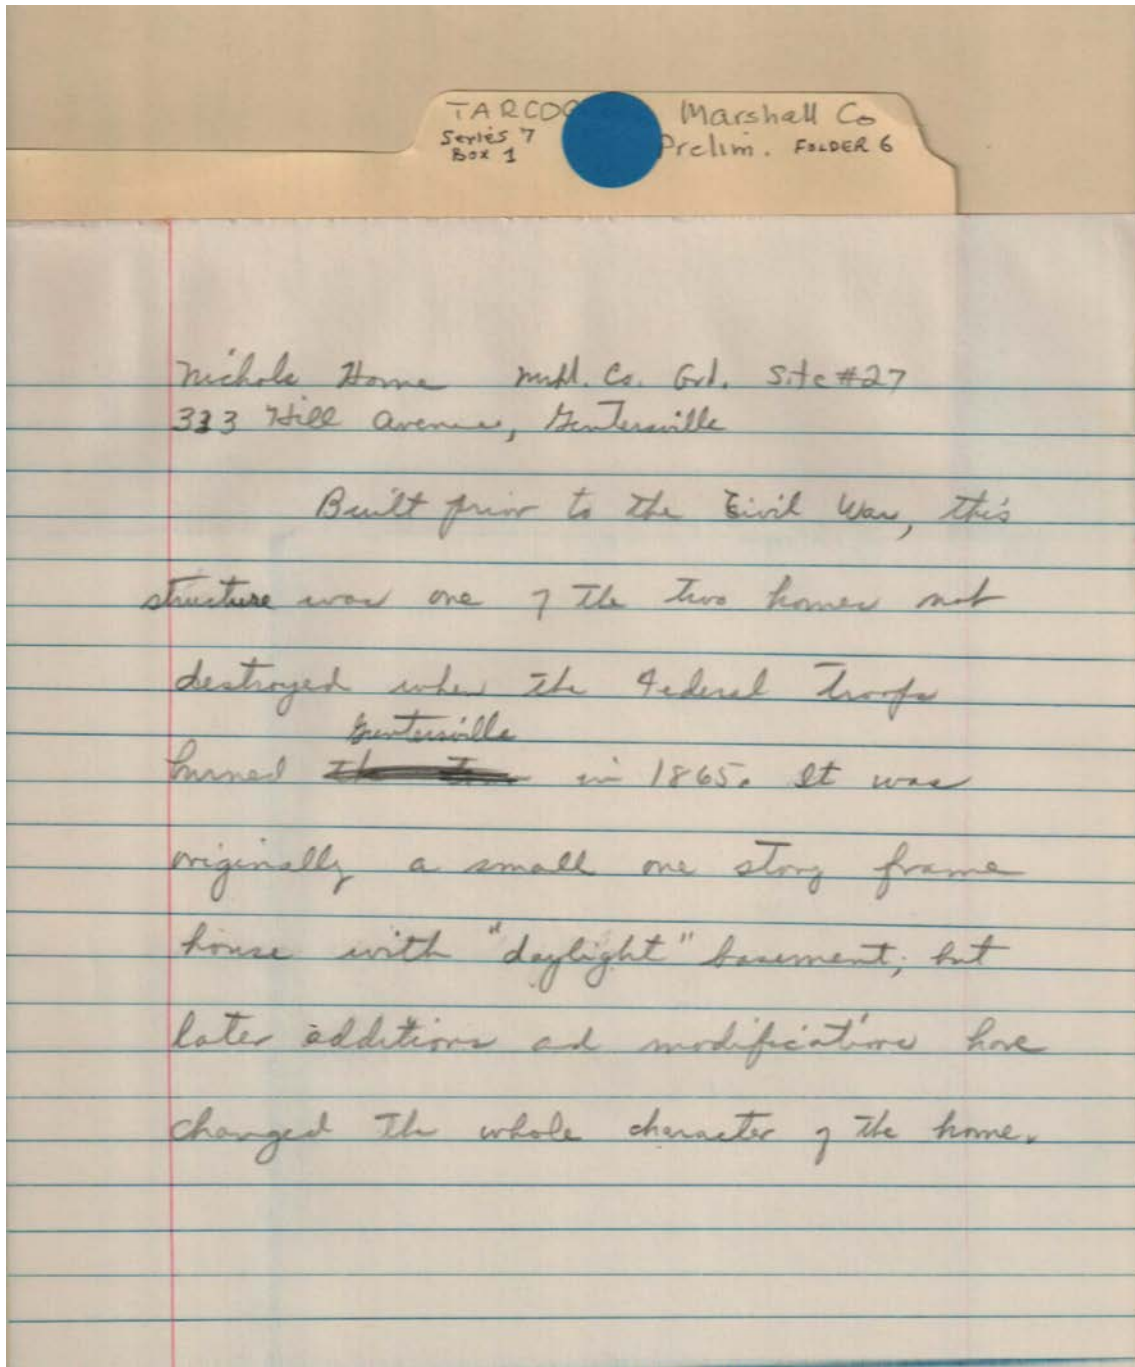 TARCOG Marshall Co
Series 7 Prelim. FOLDER 6
Box 1
Nichols Home Mrhl. Co. Grl. Site #27
333 Hill Avenue, Guntersville
Built prior to the Civil War, this
structure was one of the two homes not
destroyed when the Federal Troops
Guntersville
burned in 1865. It was
originally a small one story frame
house with "daylight" basement, but
later additions ad modifications have
changed the whole character of the home.